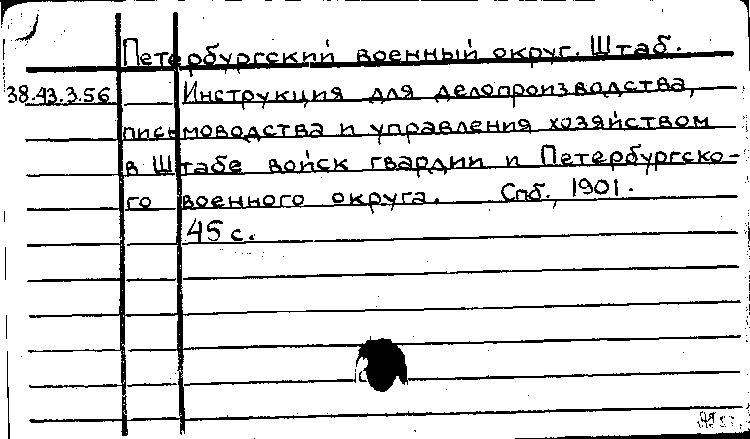 Петербургский военный округ. Штаб.
38.43.3.56 Инструкция для делопроизводства,
письмоводства и управления хозяйством
в Штабе войск гвардии и Петербургско-
го военного округа. Спб., 1901.
45 с.